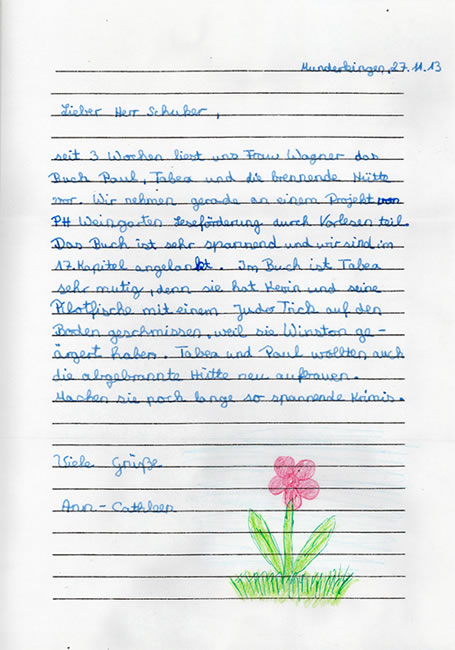 Munderkingen, 27.11.13
Lieber Herr Schuker,
seit 3 Wochen liest uns Frau Wagner das
Buch Paul, Tabea und die brennende Hütte
vor. Wir nehmen gerade an einem Projekt von
PH Weingarten Leseförderung durch Vorlesen teil.
Das Buch ist sehr spannend und wir sind im
17. Kapitel angelankt. Im Buch ist Tabea
sehr mutig, denn sie hat Kevin und seine
Pilotfische mit einem Judo Trick auf den
Boden geschmissen, weil sie Winston ge-
ärgert haben. Tabea und Paul wollten auch
die abgebrannte Hütte neu aufbauen.
Machen sie noch lange so spannende Krimis.
Viele Grüße
Ann-Cathleen